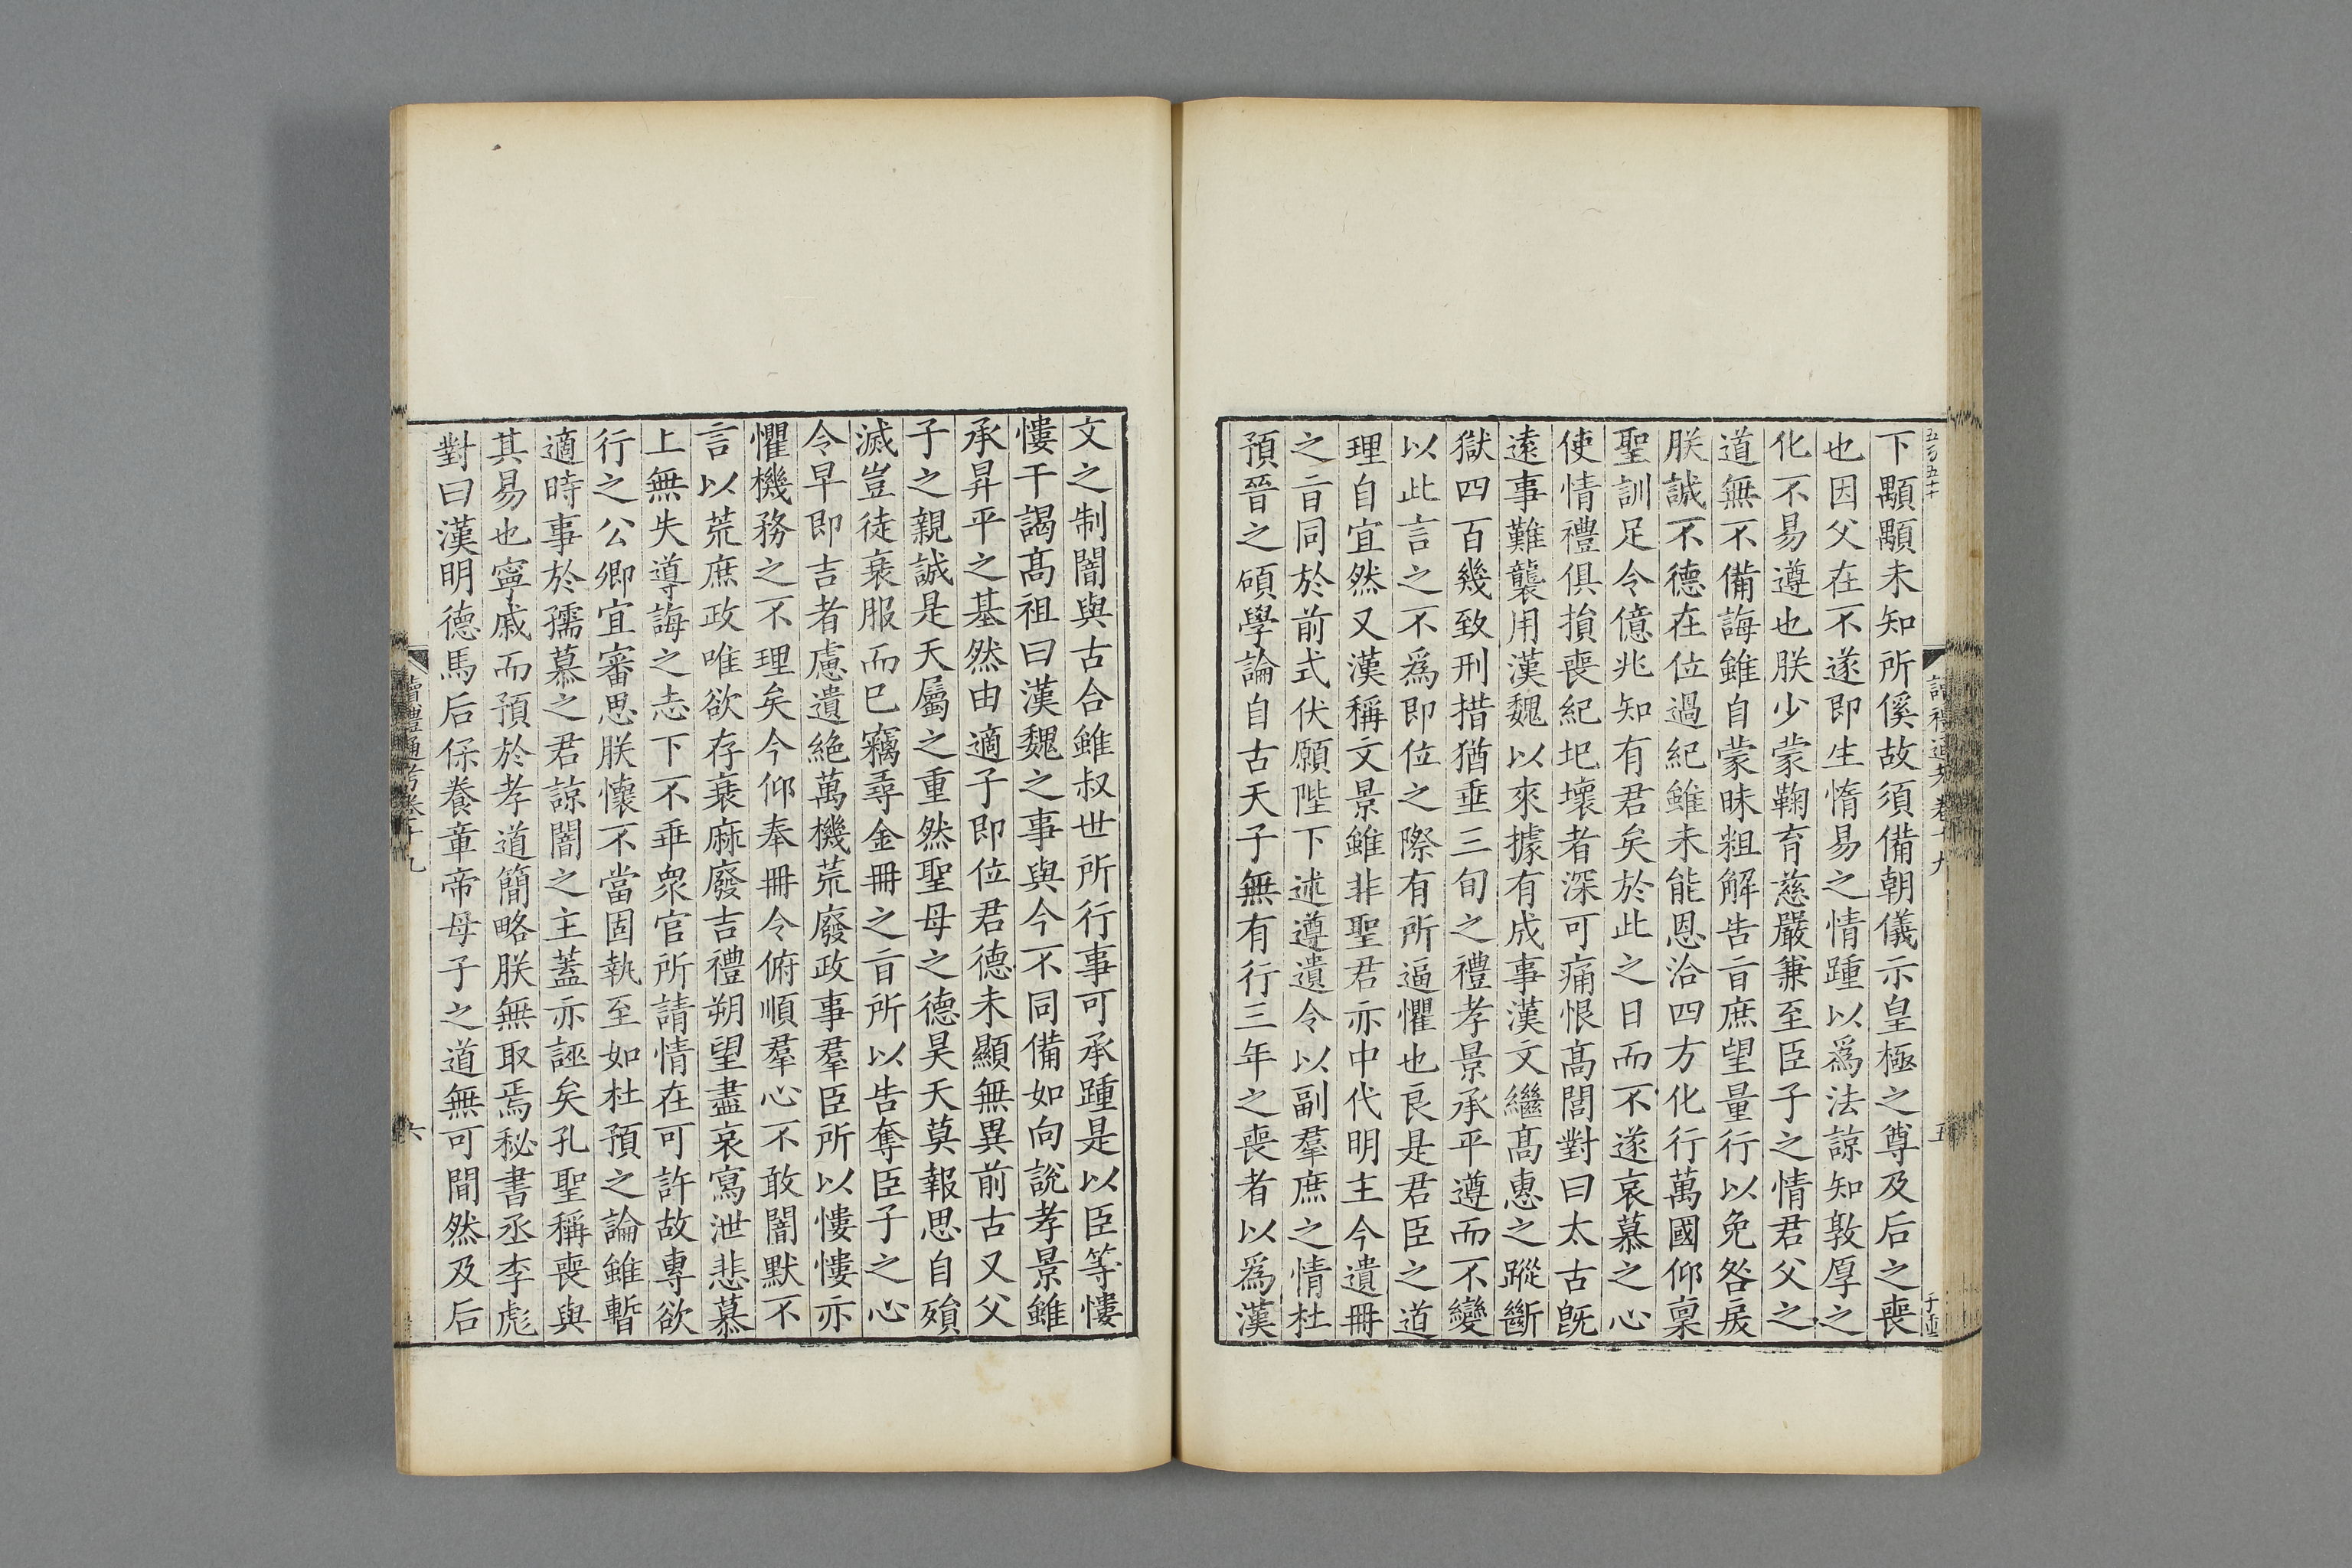 五百五十
讀禮通考卷十九
五
下顒顒未知所傒故須備朝儀示皇極之尊及后之喪
也因父在不遂即生惰易之情踵以爲法諒知敦厚之
化不易遵也朕少蒙鞠育慈嚴兼至臣子之情君父之
道無不備誨雖自蒙昧粗解告㫖庶望量行以免咎戾
朕誠不德在位過紀雖未能恩洽四方化行萬國仰禀
聖訓足令億兆知有君矣於此之日而不遂哀慕之心
使情禮俱損喪紀圯壞者深可痛恨髙閭對曰太古旣
逺事難襲用漢魏以來據有成事漢文繼髙惠之蹤斷
獄四百幾致刑措猶垂三旬之禮孝景承平遵而不變
以此言之不爲即位之際有所逼懼也良是君臣之道
理自宜然又漢稱文景雖非聖君亦中代明主今遺冊
之㫖同於前式伏願陛下述遵遺令以副羣庶之情杜
預晉之碩學論自古天子無有行三年之喪者以爲漢
文之制闇與古合雖叔世所行事可承踵是以臣等慺
慺干謁髙祖曰漢魏之事與今不同備如向說孝景雖
承昇平之基然由適子即位君德未顯無異前古又父
子之親誠是天屬之重然聖母之德昊天莫報思自殞
滅豈徒衰服而已竊尋金冊之㫖所以告奪臣子之心
令早即吉者慮遺絶萬機荒廢政事羣臣所以慺慺亦
懼機務之不理矣今仰奉冊令俯順羣心不敢闇默不
言以荒庶政唯欲存衰麻廢吉禮朔望盡哀寫泄悲慕
上無失導誨之志下不乖衆官所請情在可許故專欲
行之公卿宜審思朕懷不當固執至如杜預之論雖暫
適時事於孺慕之君諒闇之主蓋亦誣矣孔聖稱喪與
其易也寧戚而預於孝道簡略朕無取焉秘書丞李彪
對曰漢明德馬后保養章帝母子之道無可間然及后
讀禮通考卷十九
六